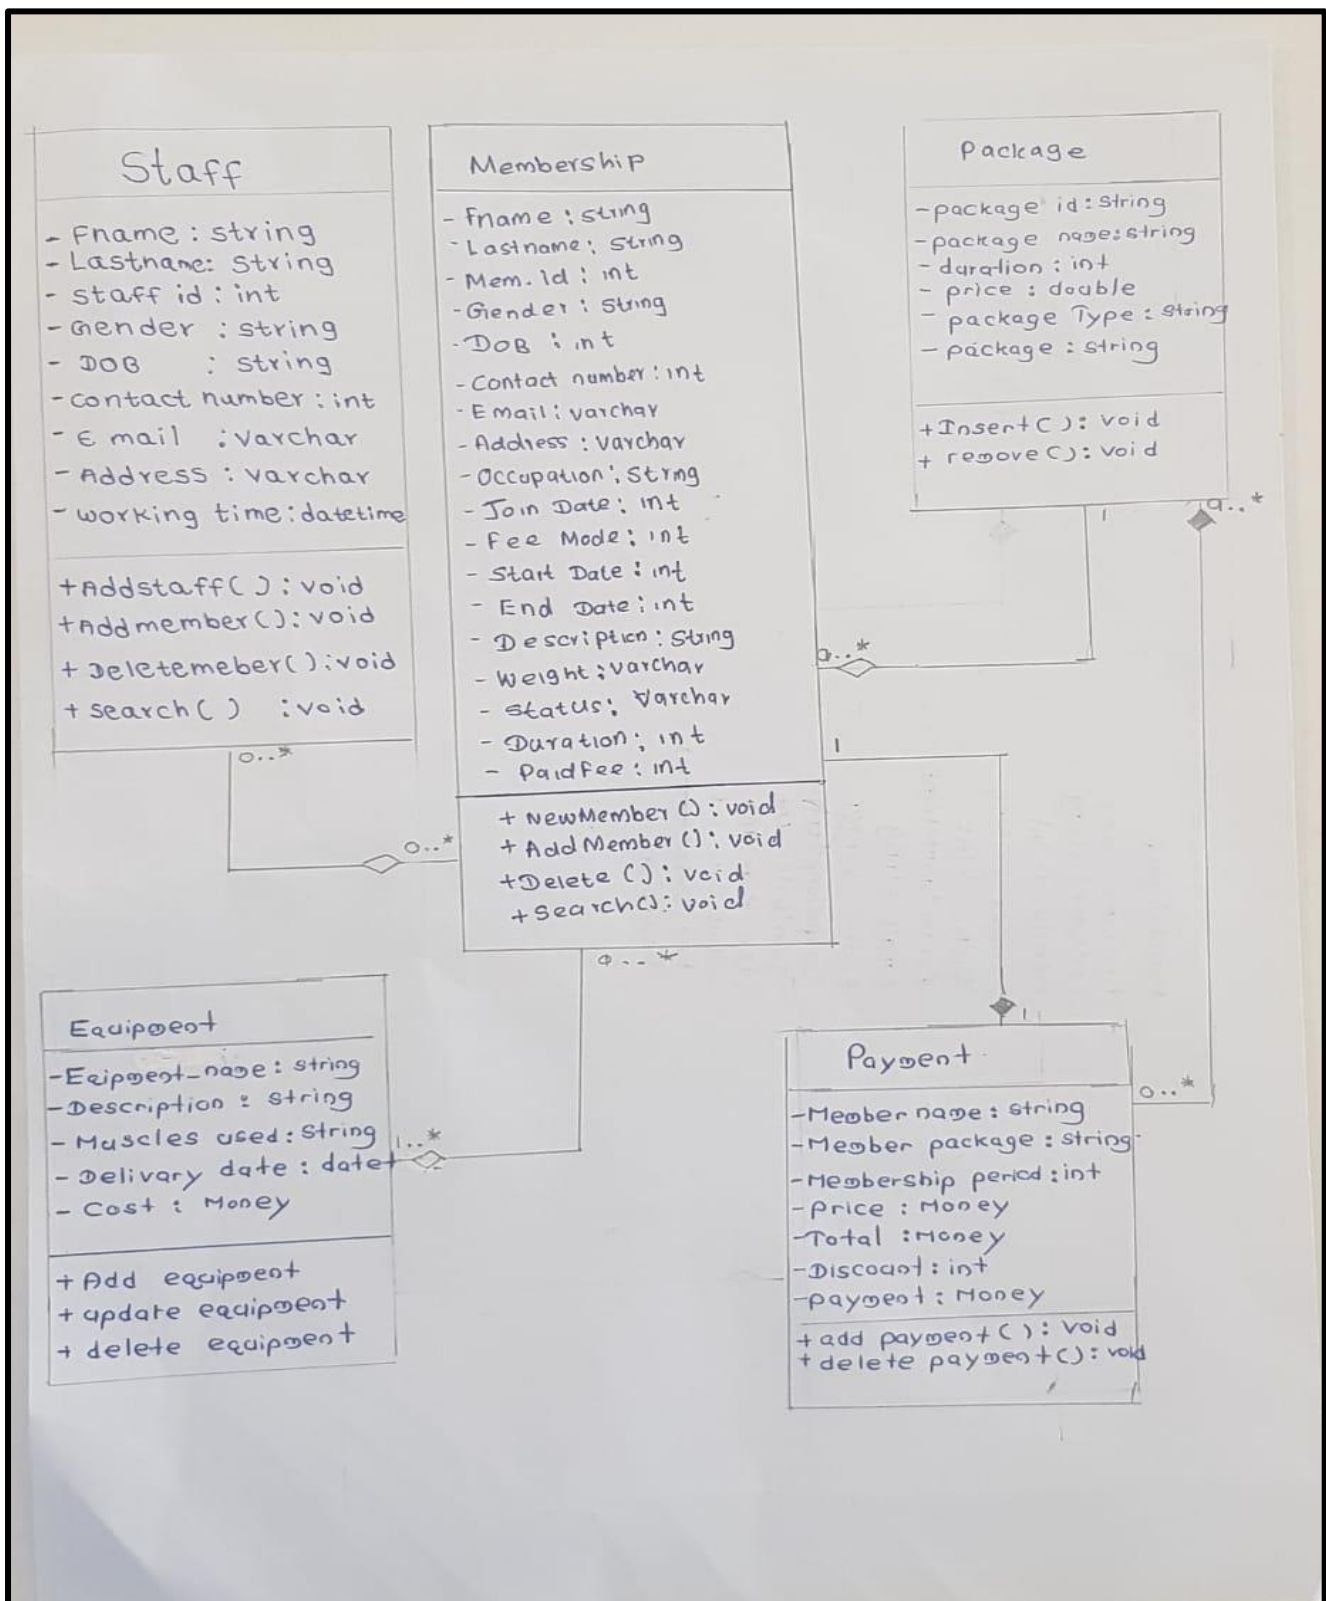 Staff
- Fname : string
- Lastname: String
- staff id : int
- Gender : string
- DOB : string
- contact number : int
- E mail : varchar
- Address : varchar
- working time : datetime
+Addstaff() : void
+Addmember() : void
+ Deletemeber() : void
+ search() : void
0..*
0..*
Membership
- Fname : string
- Lastname : String
- Mem. Id : int
- Gender : string
- DOB : int
- Contact number : int
- Email : varchar
- Address : varchar
- Occupation : String
- Join Date : int
- Fee Mode : int
- Start Date : int
- End Date : int
- Description : String
- Weight : varchar
- Status : Varchar
- Duration : int
- PaidFee : int
+ NewMember () : void
+ Add Member () : void
+Delete () : void
+ Search() : void
0..*
0..*
1
Package
- package id : string
- package name : string
- duration : int
- price : double
- package Type : string
- package : string
+Insert() : void
+ remove() : void
1
0..*
Equipment
- Eqipment_name : string
- Description : string
- Muscles used : String
- Delivary date : datet
- Cost : Money
+ Add equipment
+ update equipment
+ delete equipment
1..*
1
Payment
- Member name : string
- Member package : string
- Membership period : int
- Price : Money
- Total : Money
- Discount : int
- payment : Money
+ add payment() : void
+ delete payment() : void
0..*